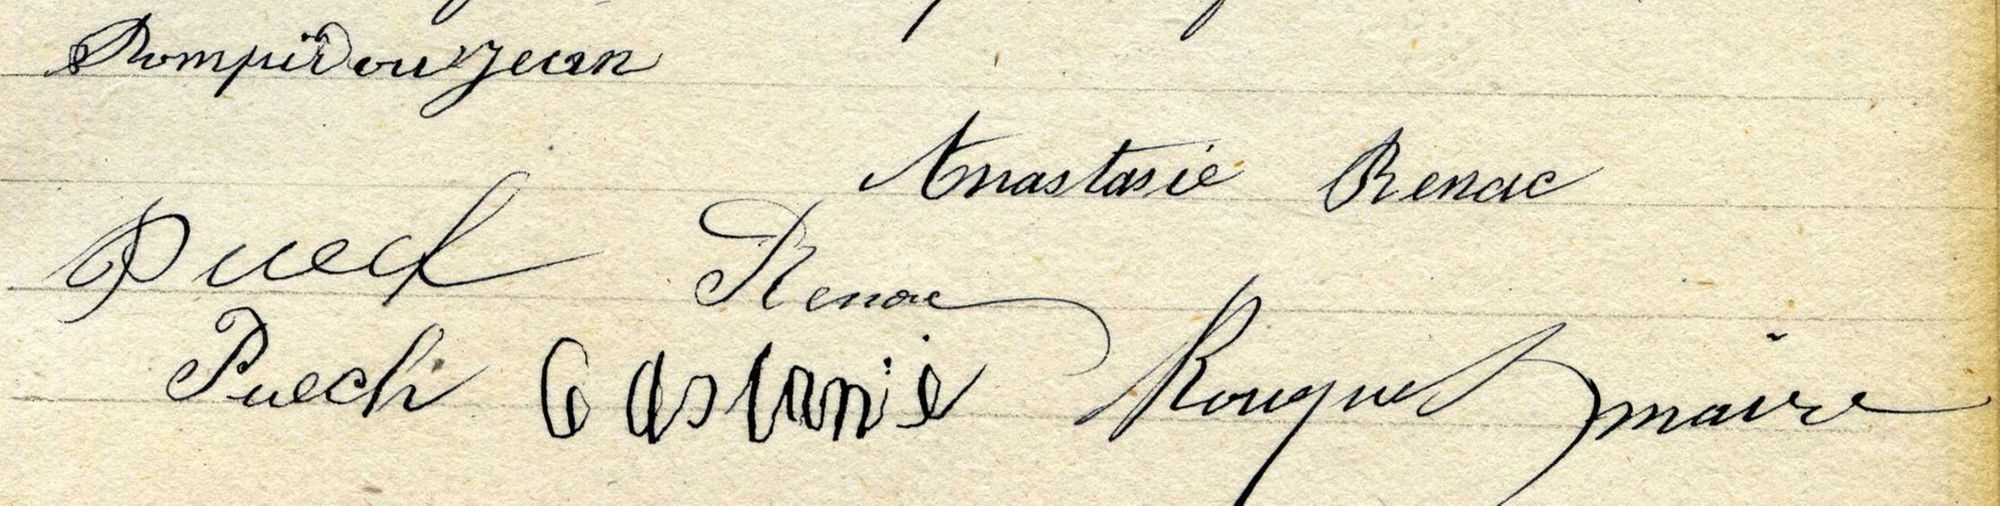 Pompidou Jean
Anastasie Renac
Puech Renac
Puech Castanié Rouquet maire